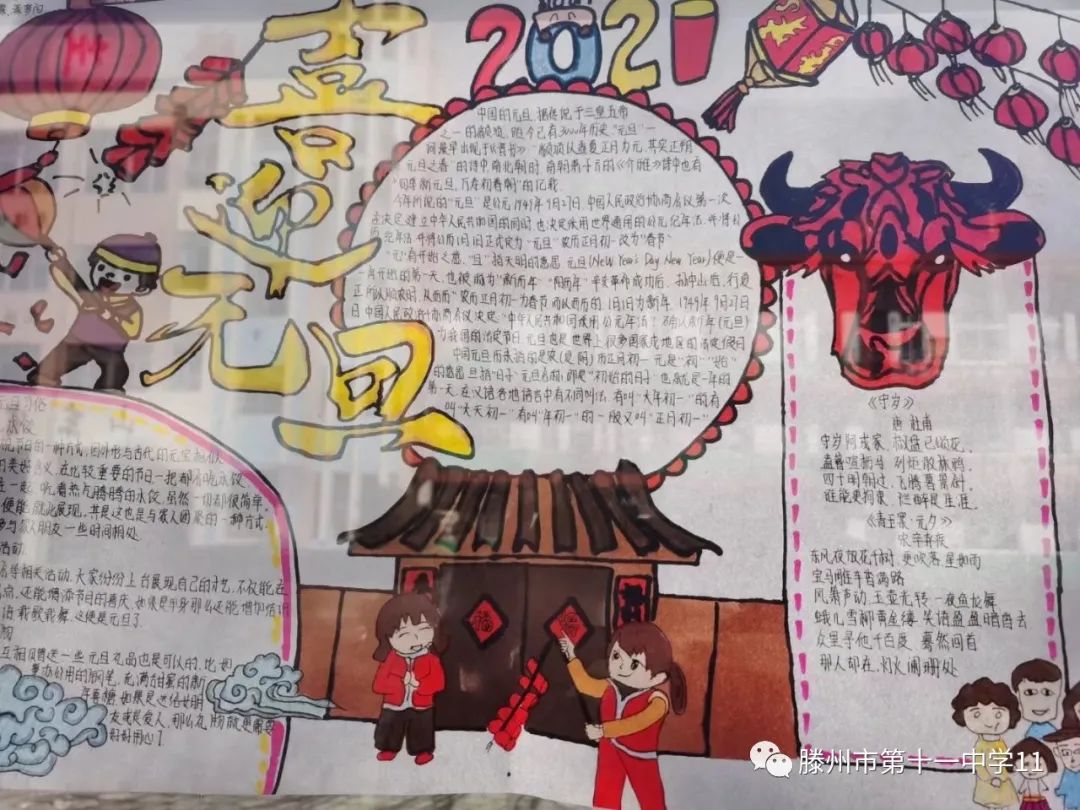 喜迎元旦
2021
中国的元旦,据传说于三皇五帝
之一的颛顼,距今已有3000年历史"元旦"一
词最早出现于《晋书》:"颛顼以孟夏正月为元,其实正朔
元旦之春"的诗中,南北朝时,南朝萧子云的《介雅》诗中也有
"四季新元旦,万寿初春朝"的记载.
今年所说的"元旦"是公元1949年9月27日,中国人民政治协商会议第一次
在决定建立中华人民共和国的同时,也决定采用世界通用的公元纪年法,并将公
历
正式定为"元旦"农历正月初一改为"春节"
"元"有开始之意,"旦"指天明的意思 元旦(New Year's Day New Year)便是一
一年开始的第一天,也被称为"新历年" "阳历年" 辛亥革命成功后,孙中山为行夏
正所以顺农时,从西历"农历正月初一为春节 而以西历的1月1日为新年,1949年9月27日
日中国人民政治协商会议决定"中华人民共和国采用公元年法"
(元旦)
为我国的法定节日 元旦也是世界上很多国家或地区的法定假日
中国元旦历来指的是农(夏 阴)历正月初一 元是"初""始"
的意思 旦指"日子" 元旦合称即是"初始的日子" 也就是一年的
第一天,在汉语各地语言中有不同叫法,有叫"大年初一"的有
叫"大天初一"有叫"年初一"的 一般又叫"正月初一"
《守岁》
唐 杜甫
守岁阿戎家, 椒盘已颂花。
盍簪喧枥马, 列炬散林鸦。
四十明朝过, 飞腾暮景斜。
谁能更拘束, 烂醉是生涯。
《青玉案·元夕》
宋 辛弃疾
东风夜放花千树, 更吹落,星如雨
宝马雕车香满路
凤箫声动,玉壶光转 一夜鱼龙舞
蛾儿雪柳黄金缕 笑语盈盈暗香去
众里寻他千百度 蓦然回首
那人却在,灯火阑珊处
元旦习俗
水饺
节日的一种方式,因外形与古代的元宝相似
的美好含义,在比较重要的节日一把都
水饺
在一起,吃着热气腾腾的水饺,虽然一切都很简单
便能就此展现,其是这也是与家人团聚的一种方式
与家人朋友一些时间相处
活动.
相关活动.大家纷纷上台展现自己的才艺,不仅能在
还能增添节目的喜庆,
那么还能增加
语载歌载舞,这便是元旦了.
互相赠送一些元旦礼品也是可以的,比如
办公用的钢笔,
如果是送给女朋
友或是爱人,那么礼物就更需要
好好用心了
福
福
滕州市第十一中学11